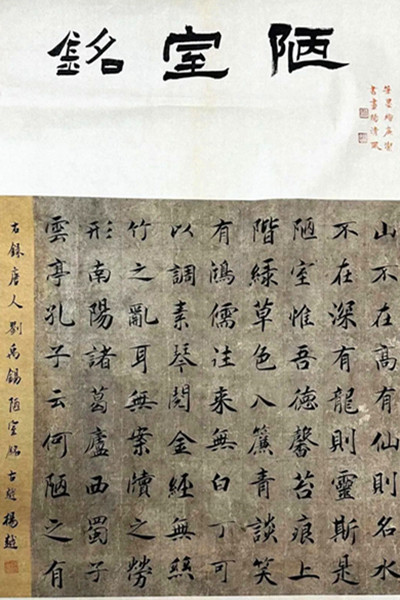 陋室銘
山不在高有仙則名水
不在深有龍則靈斯是
陋室惟吾德馨苔痕上
階綠草色入簾青談笑
有鴻儒往來無白丁可
以調素琴閱金經無絲
竹之亂耳無案牘之勞
形南陽諸葛廬西蜀子
雲亭孔子云何陋之有
右錄唐人劉禹錫陋室銘古越楊越